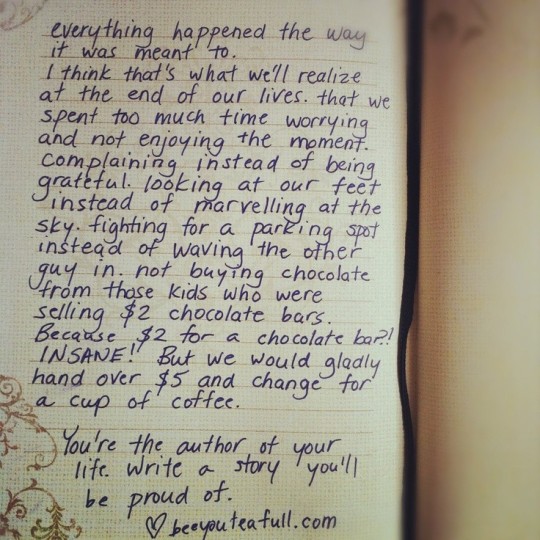 everything happened the way
it was meant to.
I think that's what we'll realize
at the end of our lives. that we
spent too much time worrying
and not enjoying the moment.
complaining instead of being
grateful. looking at our feet
instead of marvelling at the
sky. fighting for a parking spot
instead of waving the other
guy in. not buying chocolate
from those kids who were
selling $2 chocolate bars.
Because $2 for a chocolate bar?!
INSANE!! But we would gladly
hand over $5 and change for
a cup of coffee.
You're the author of your
life. Write a story you'll
be proud of.
♡ beeyouteafull.com